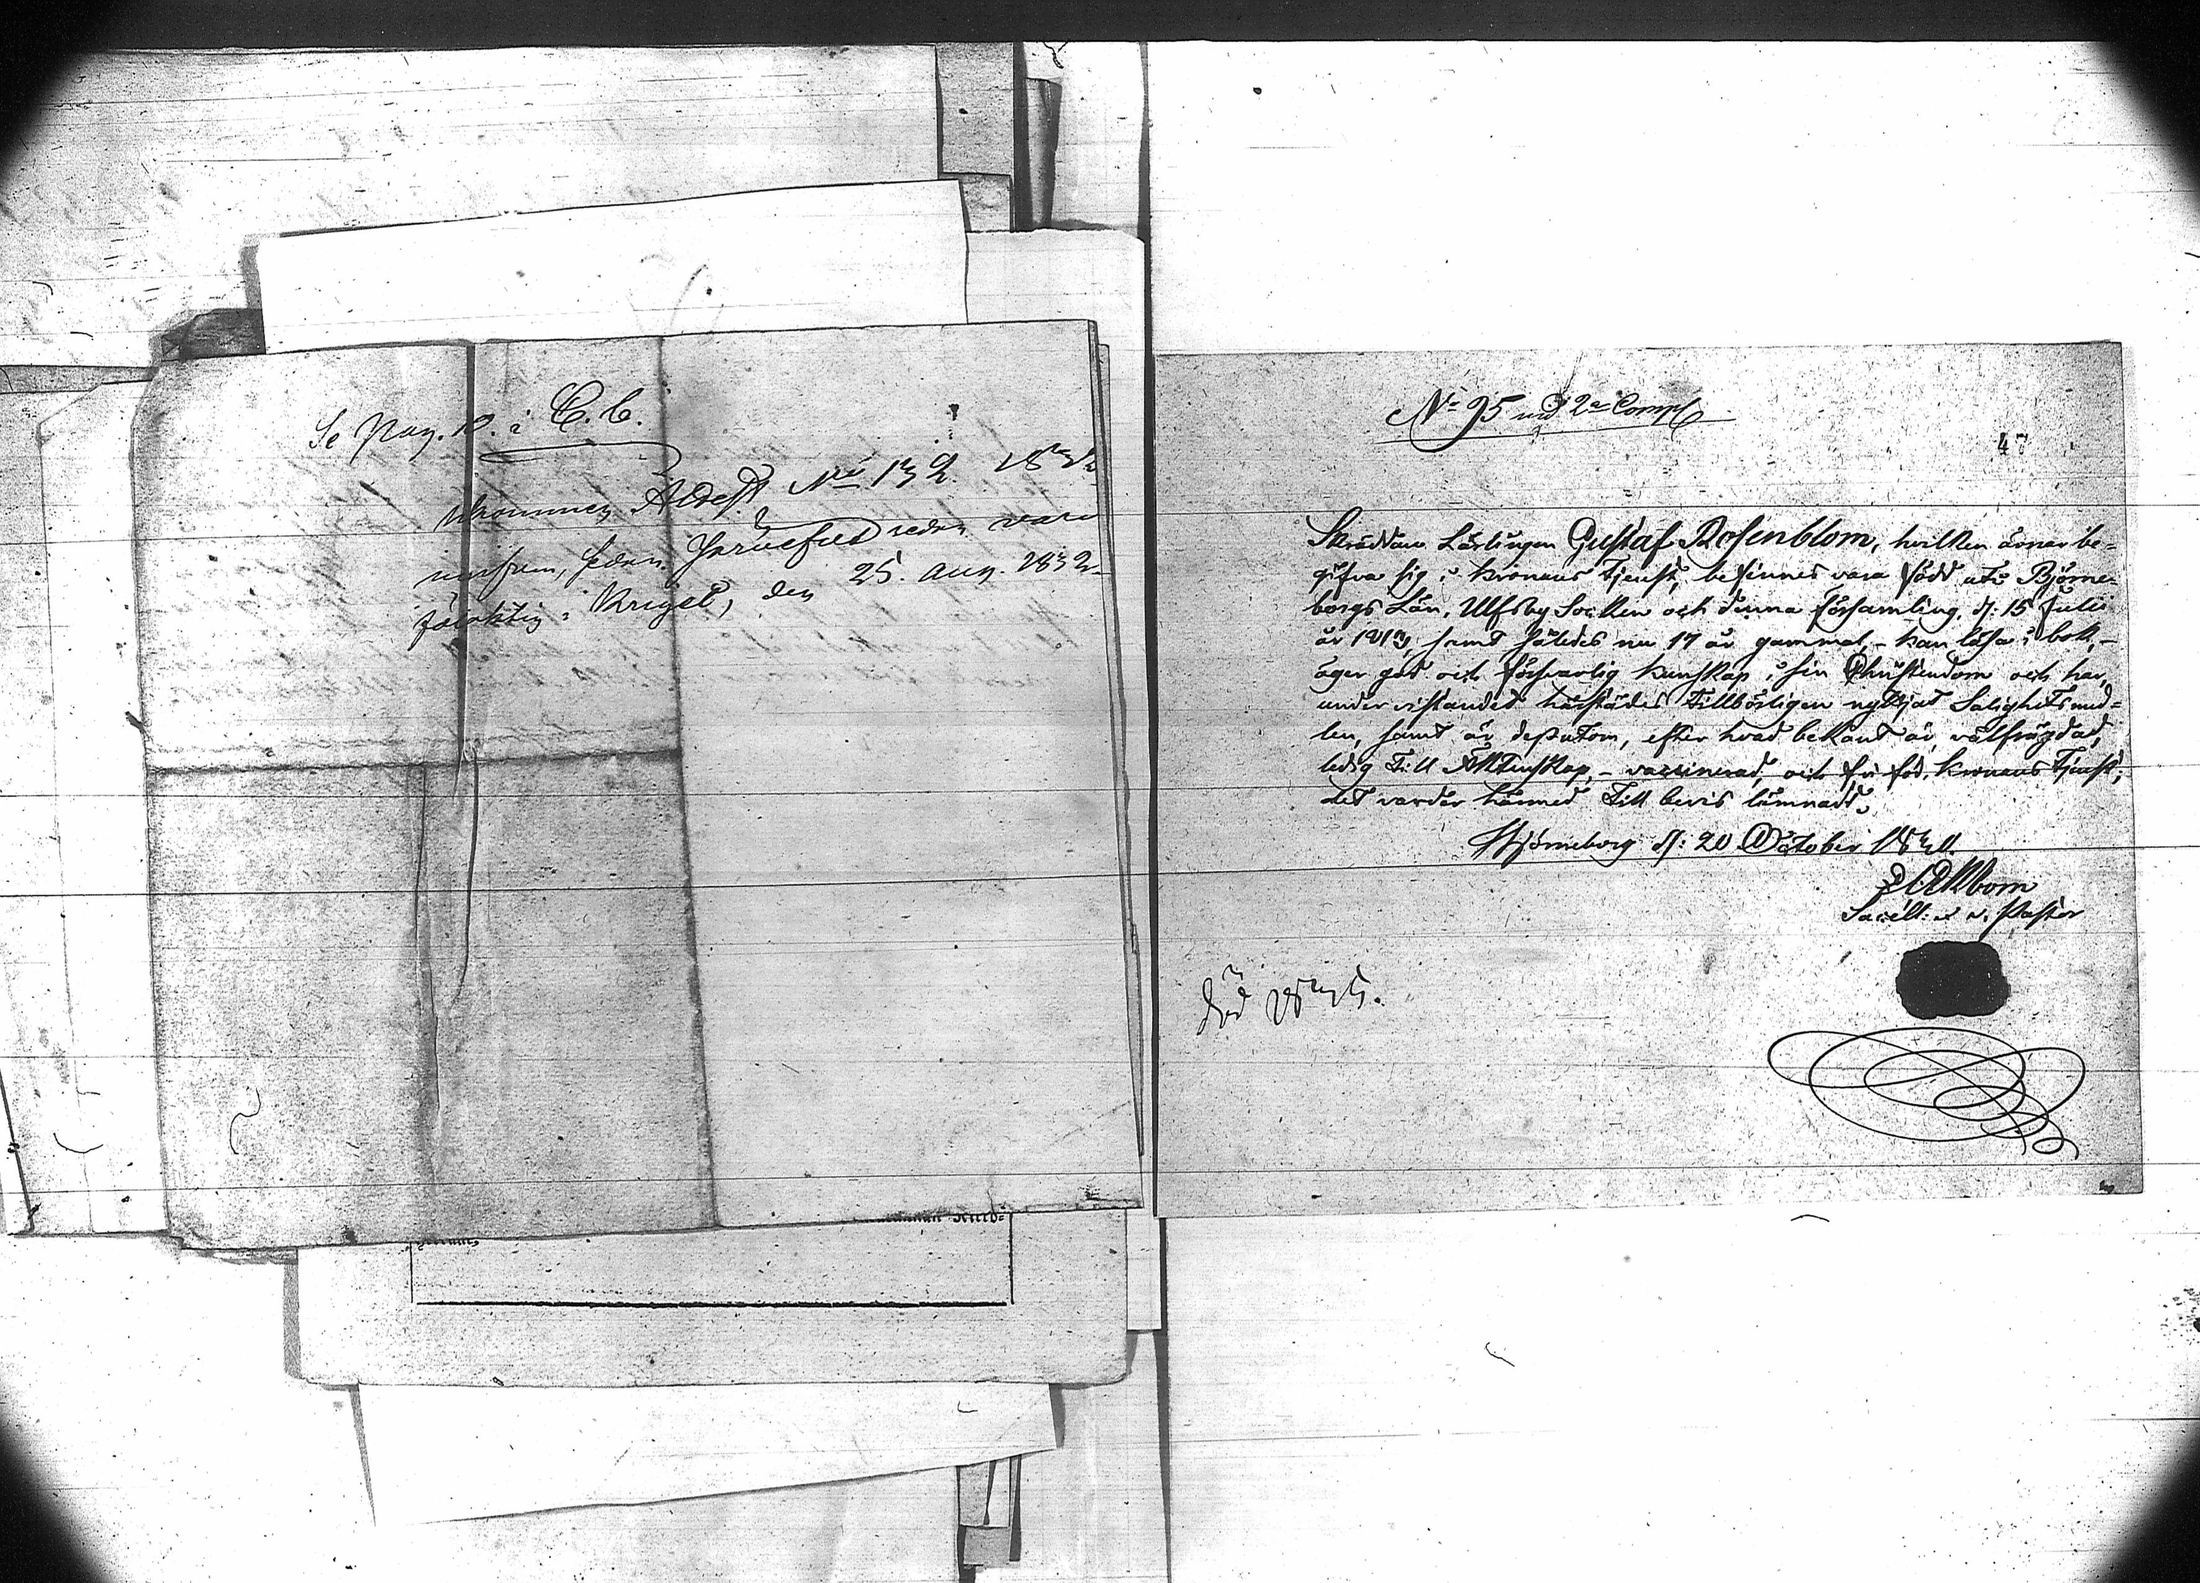 Se Pag. 10. i C. C.
Ankommen Attest No 132. 1832
den 25. Aug. 1832
No 95 vid 2a Comp
47
Skräddare Lärlingen Gustaf Rosenblom, hvilken ärnar be=
gifva sig i Kronans tjenst, befinnes vara född uti Björne-
borgs Län, Ulfsby Socken och denna församling d: 15 Julii
år 1813, samt således nu 17 år gammal, - kan läsa i bok, -
äger god och försvarlig kunskap i sin Christendom och har,
under vistandet härstädes tillbörligen nyttjat Salighetsmed=
len, samt är dessutom, efter hvad bekant är, välfrägdad,
ledig till Äktenskap, - vaccinerad, och fri för Kronans tjenst;
det varder härmed till bevis lämnadt.
Björneborg d: 20 October 1830.
Åkbom
Sacell: v. v. Pastor
Död